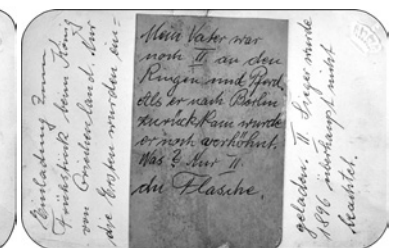 Einladung zum
Frühstück beim König
von Griechenland. Nur
die Ersten wurden ein=
Mein Vater war
noch II an den
Ringen und Pferd
Als er nach Berlin
zurückkam wurde
er noch verhöhnt.
Was? Nur II.
du Flasche.
geladen. II. Sieger wurde
1896 überhaupt nicht
beachtet.